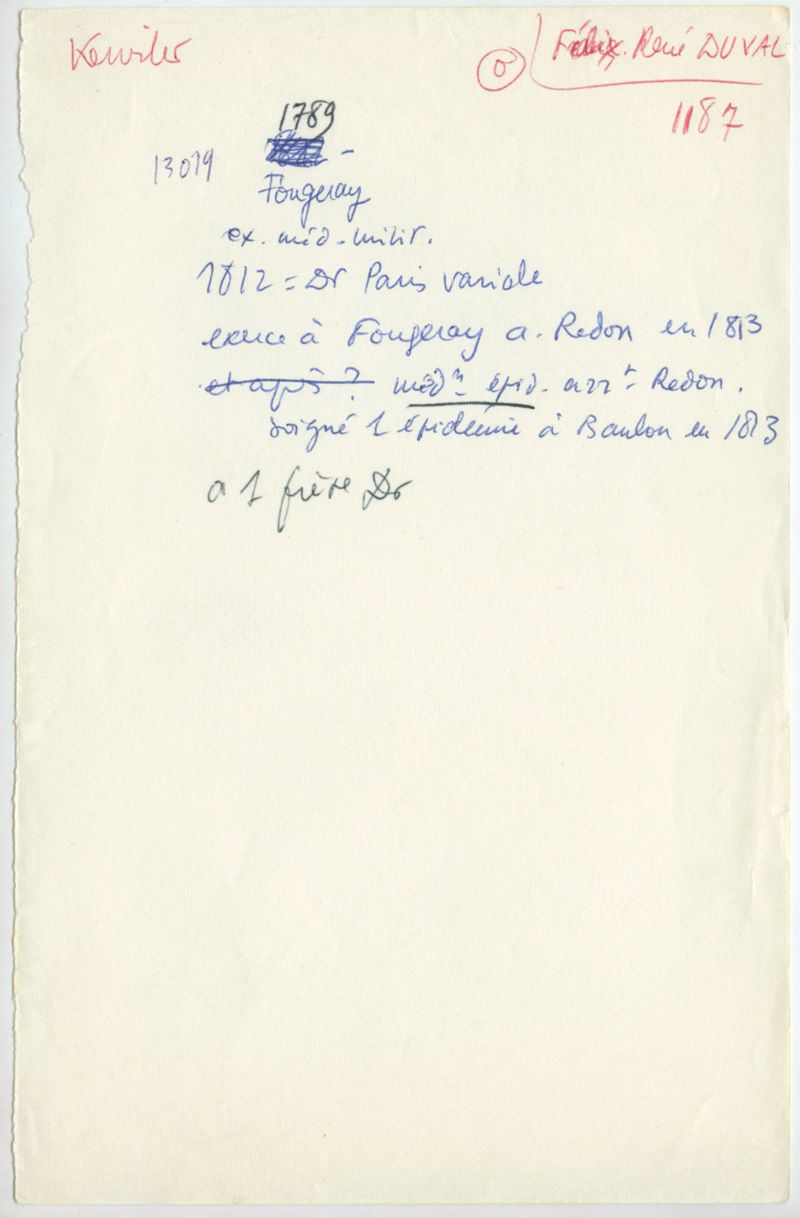 Kerviler
0 Félix René DUVAL
1187
1789
13019
Fougeray
ex. méd. milit.
1812 = Dr Paris variole
exerce à Fougeray a. Redon en 1813
et après ? médn épid. arrt Redon.
soigné 1 épidémie à Baulon en 1813
a 1 frère Dr